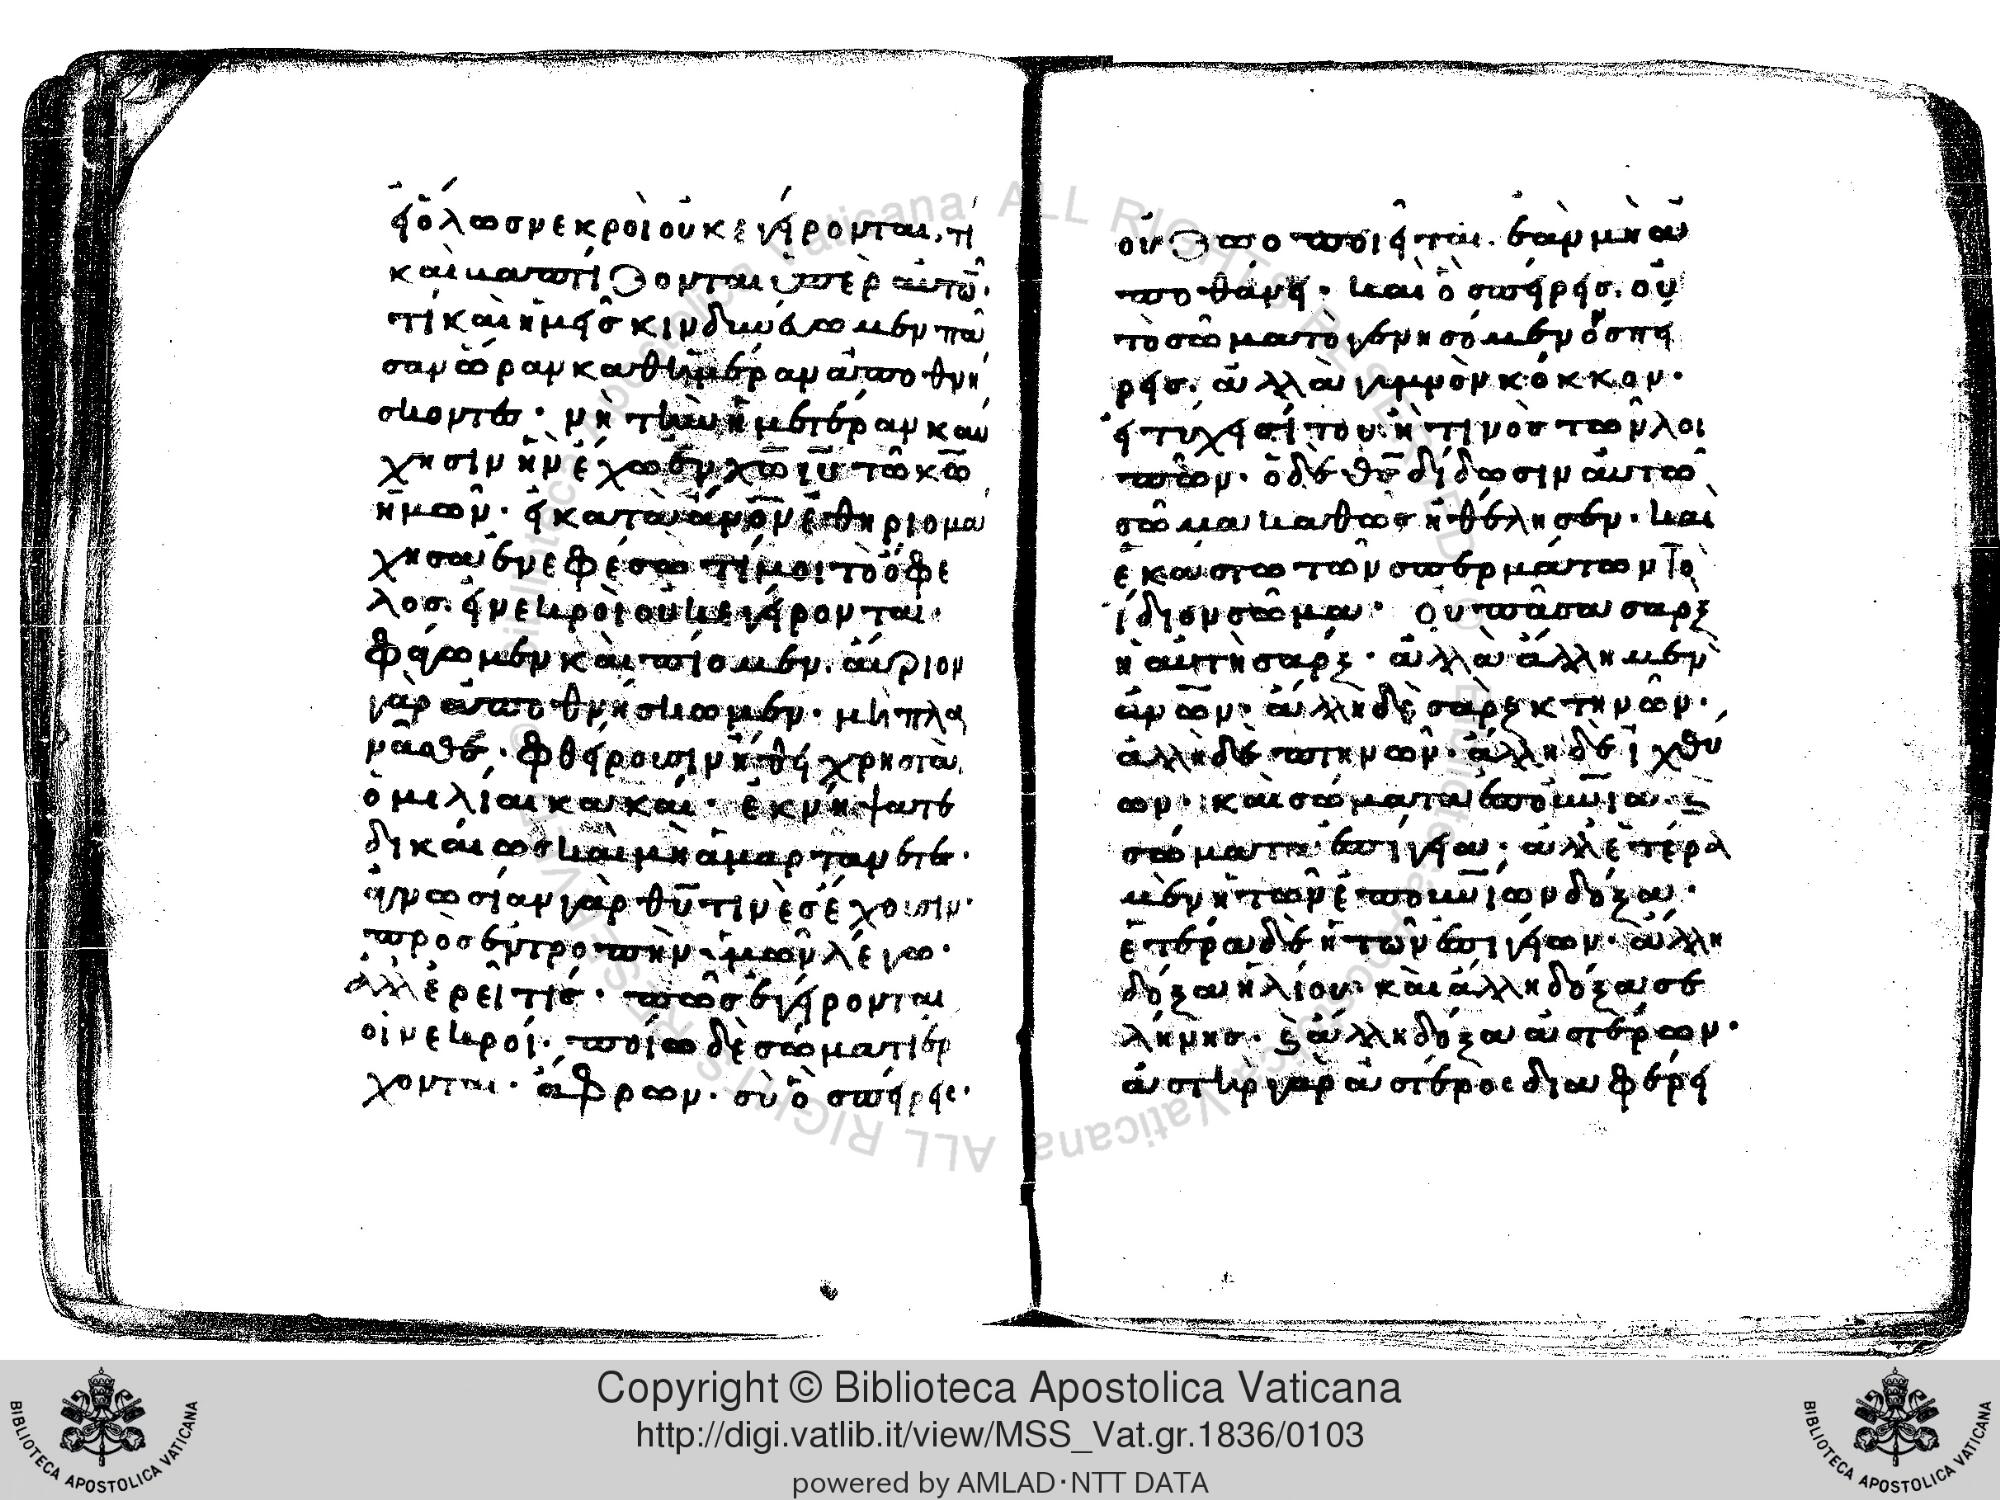 εἰ ὅλωσ νεκροὶ οὐκ ἐγείρονται, τί
καὶ βαπτίζονται ὑπὲρ αὐτῶ̅·
τί καὶ ἡμεῖσ κινδυνεύωμεν πᾶ
σαν ὥραν καθημέραν ἀποθνή
σκοντες· νὴ τὴν ἡμετέραν καύ
χησιν ἣν ἔχω ἐν χ̅ω̅ ι̅υ̅ τῶ κ̅ω̅
ἡμῶν· εἰ κατὰ α̅ν̅ο̅ν̅ ἐθηριομά
χησα ἐν ἐφέσω τί μοι τὸ ὄφε
λοσ. εἰ νεκροὶ οὐκ ἐγείρονται·
φάγωμεν καὶ πίομεν. αὔριον
γὰρ ἀποθνήσκωμεν· μὴ πλα
νᾶσθε· φθείρουσιν ἤθει χρηστὰ
ὁμιλίαι κακαί· ἐκνήψατε
δικαίωσ καὶ μὴ ἁμαρτάνετε·
ἀγνωσίαν γὰρ θ̅υ̅ τινὲσ ἔχουσιν·
πρὸσ ἐντροπὴν ἡμῶν λέγω·
ἀλλ ἐρεῖ τίσ· πῶσ ἐγείρονται
οἱ νεκροί· ποίω δὲ σώματι ἔρ
χονται· ἄφρων· σὺ ὃ σπείρεις·
οὐ ζωοποιεῖται· ἐὰν μὴ ἀ
ποθάνη· καὶ ὃ σπείρεισ. οὐ
τὸ σῶμα τὸ γενησόμενον σπεί
ρεισ. ἀλλὰ γυμνὸν κόκκον·
εἰ τύχει σίτου ἤ τινοσ τῶν λοι
πῶν· ὁ δὲ θ̅σ̅ δίδωσιν αὐτῶ
σῶμα καθὼσ ἠθέλησεν· καὶ
ἑκάστω τῶν σπερμάτων τὸ
ἴδιον σῶμα· Οὐ πᾶσα σὰρξ
ἡ αὐτὴ σάρξ· ἀλλὰ ἄλλη μὲν
α̅ν̅ω̅ν· ἄλλη δὲ σὰρξ κτηνῶν·
ἄλλη δὲ πτηνῶν· ἄλλη δὲ ἰχθύ
ων· καὶ σώματα ἐπουν̅ια· ϗ
σώματα ἐπίγεια· ἀλλ ἑτέρα
μὲν ἡ τῶν ἐπουν̅ίων δόξα·
ἑτέρα δὲ ἡ τῶν ἐπιγείων· ἄλλη
δόξα ἡλίου· καὶ ἄλλη δόξα σε
λήνησ· ϗ ἄλλη δόξα ἀστέρων·
ἀστὴρ γὰρ ἀστέροσ διαφέρει
Copyright © Biblioteca Apostolica Vaticana
http://digi.vatlib.it/view/MSS_Vat.gr.1836/0103
powered by AMLAD·NTT DATA
BIBLIOTECA APOSTOLICA VATICANA
BIBLIOTECA APOSTOLICA VATICANA